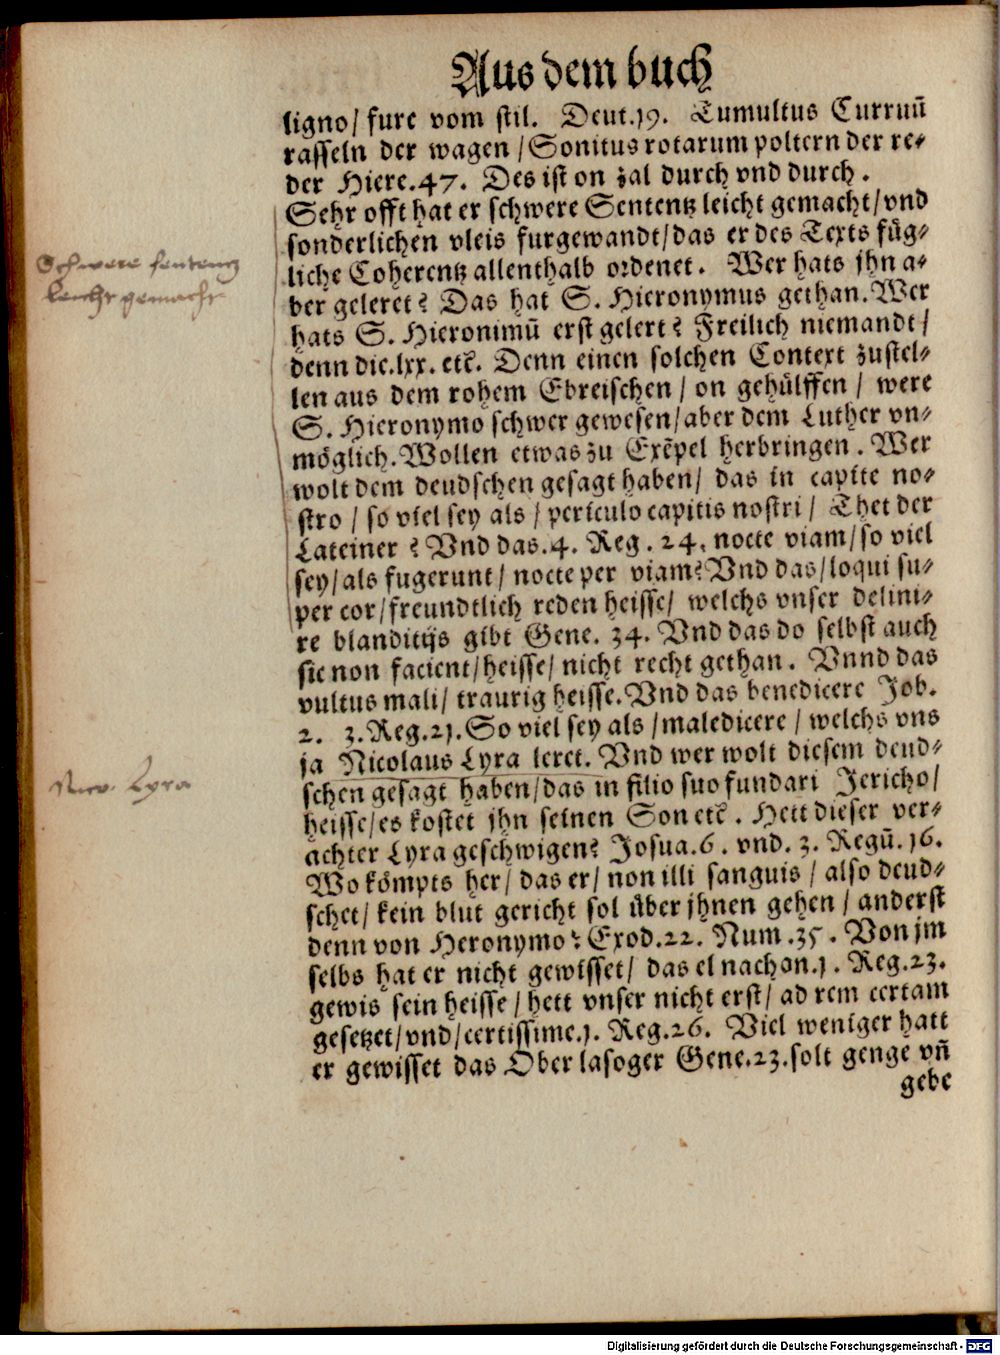 Aus dem buch
ligno/ fure vom stil. Deut.19. Tumultus Curruū
rasseln der wagen /Sonitus rotarum poltern der re-
der Hiere.47. Des ist on zal durch vnd durch.
Sehr offt hat er schwere Sententz leicht gemacht/vnd
sonderlichen vleis furgewandt/das er des Texts füg-
liche Coherentz allenthalb ordenet. Wer hats jhn a-
ber geleret? Das hat S. Hieronymus gethan. Wer
hats S. Hieronimū erst gelert? Freilich niemandt/
denn die.lxx. etc̄. Denn einen solchen Context zustel-
len aus dem rohem Ebreischen/ on gehülffen/ were
S. Hieronymo schwer gewesen/aber dem Luther vn-
möglich. Wollen etwas zu Exēpel herbringen. Wer
wolt dem deudschen gesagt haben/ das in capite no-
stro / so viel sey als / periculo capitis nostri/ Thet der
Lateiner? Vnd das.4. Reg. 24. nocte viam/so viel
sey/als fugerunt/ nocte per viam? Vnd das/loqui su-
per cor/freundtlich reden heisse/ welchs vnser delini-
re blanditijs gibt Gene. 34. Vnd das do selbst auch
sic non facient/heisse/ nicht recht gethan. Vnnd das
vultus mali/ traurig heisse. Vnd das benedicere Job.
2. 3.Reg.21. So viel sey als /maledicere/ welchs vns
ja Nicolaus Lyra leret. Vnd wer wolt diesem deud-
schen gesagt haben/das in filio suo fundari Jericho/
heisse/es kostet jhn seinen Son etc̄. Hett dieser ver-
achter Lyra geschwigen? Josua.6. vnd. 3. Regū.16.
Wo kömpts her/ das er/ non illi sanguis/ also deud-
schet/ kein blut gericht sol über jhnen gehen/ anderst
denn von Heronymo? Exod.22. Num.35. Von jm
selbs hat er nicht gewisset/ das el nachon.1. Reg.23.
gewis sein heisse/ hett vnser nicht erst/ ad rem certam
gesetzet/vnd/certissime.1. Reg.26. Viel weniger hatt
er gewisset das Ober lasoger Gene.23.solt genge vn̄
gebe
Schwere sententz
leicht gemacht
Nico. Lyra
Digitalisierung gefördert durch die Deutsche Forschungsgemeinschaft - DFG